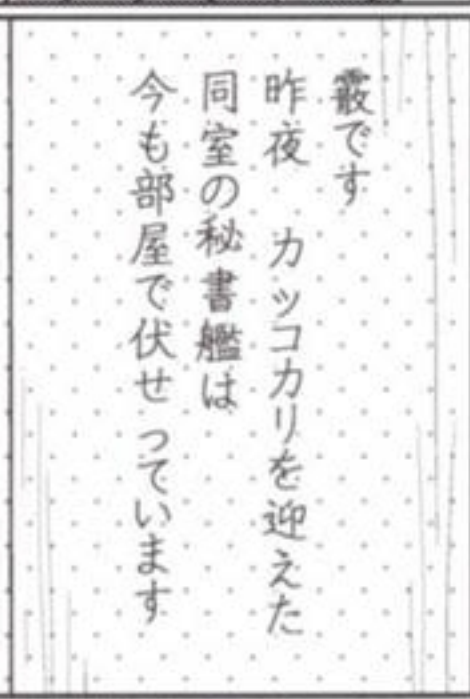 霰です
昨夜 カッコカリを迎えた
同室の秘書艦は
今も部屋で伏せっています